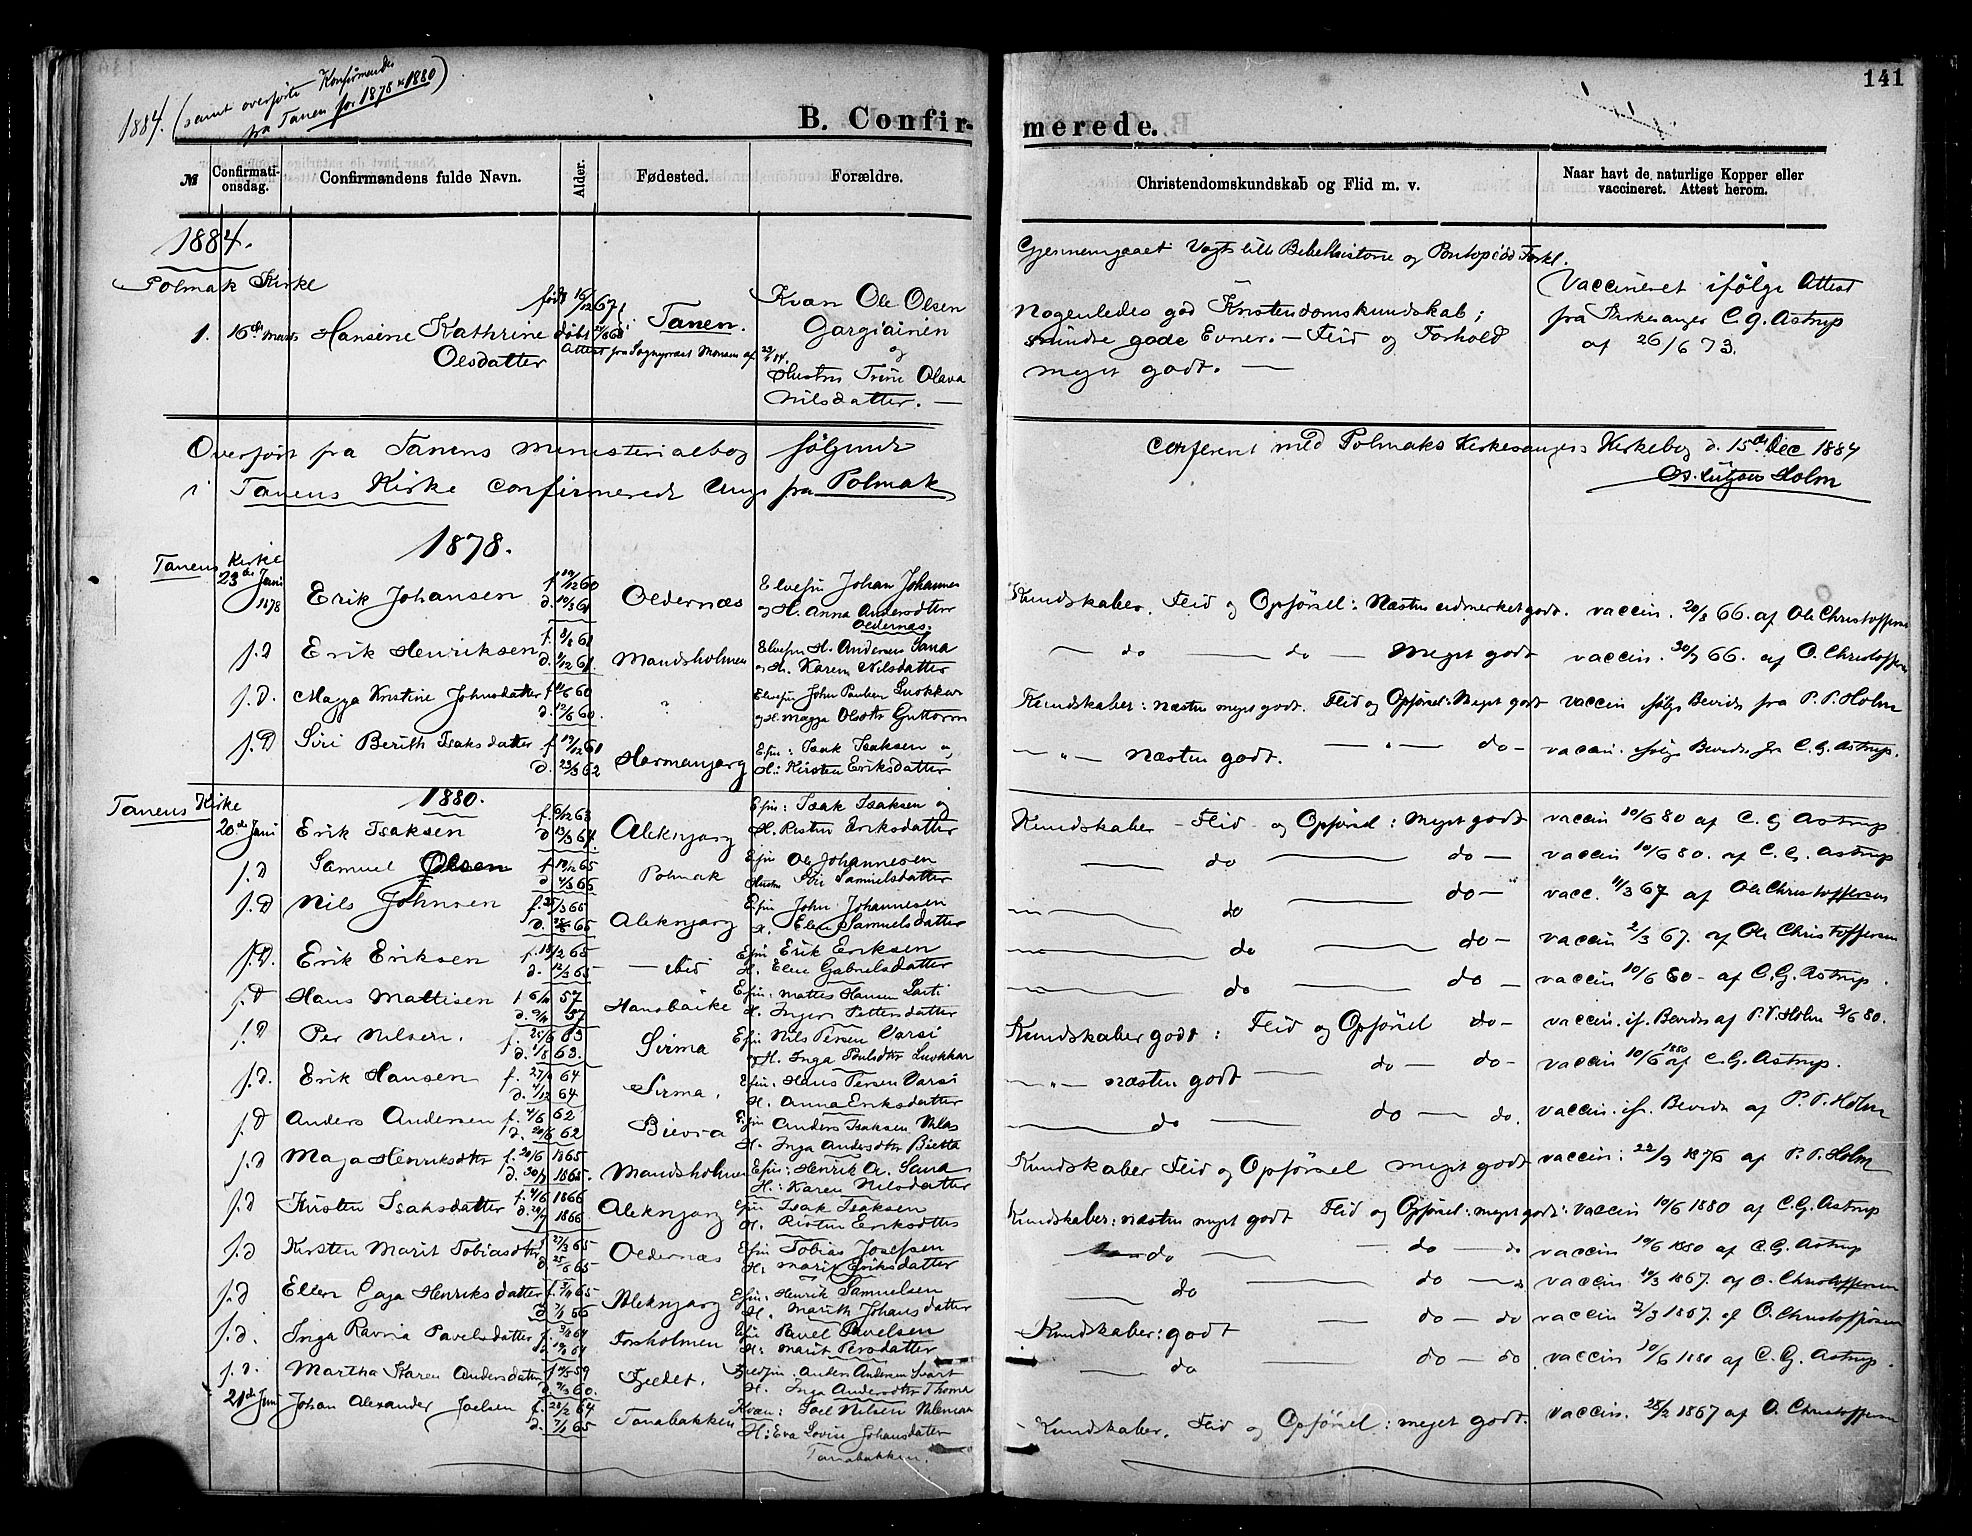 141
1884. (samt overførte Konfirmander
fra Tanen for 1878 & 1880)
B. Confirmerede.
№ Confirmationsdag. Confirmandens fulde Navn. Alder. Fødested. Forældre. Christendomskundskab og Flid m. v. Naar havt de naturlige Kopper eller vaccineret. Attest herom.
1884.
Polmak Kirke
Gjennemgaaet Vogts lille Bibelhistorie og Pontopid. Forkl.
1. 16de Marts Hansine Kathrine Olsdatter
født 16/12 67
døbt
Tanen.
Attest fra Sogneprest
Kvæn Ole Olsen
Gargiainen
og
Hustru Trine Olava
Nilsdatter. —
Nogenledes god Kristendomskundskab;
mindre gode Evner. — Flid og Forhold
meget godt. —
Vaccineret ifølge Attest
fra Kirkesanger C. G. Astrup
af 26/6 73.
Overført fra Tanens ministerialbog følgende
i Tanens Kirke confirmerede Unge fra Polmak
Conferert med Polmaks Kirkesangers Kirkebog d. 15de Dec 1884
Lützow Holm
1878.
Tanens Kirke
23de Juni 1878 Erik Johansen f. 19/12 60 d. 10/3 61 Oldernæs Elvefin Johan Johannes og H. Anna Andersdtr Oldernæs. Kundskaber. Flid og Opførsel: Næsten udmerket godt. vaccin. 20/3 66. af Ole Christoffersen
s. d Erik Henriksen f. 3/8 61 d. 8/12 61. Mandsholmen Elvefin H. Andersen Sana og H. Karen Nilsdatter — do — do — Meget godt vaccin. 20/3 66. af O. Christoffersen
s. d. Magga Kristine Johnsdatter d. 12/6 60. " Elvefin John Paulsen Luokkar og H. Magga Olsdtr Guttorm Kundskaber: næsten meget godt. Flid og Opførsel: Meget godt vaccin ifølge Bevids fra P. V. Holm
s. D Siri Berith Isaksdatter f. 19/12 61 d. 23/3 62 Hormanjarg Efin: Isak Isaksen og H.: Kirsten Eriksdatter — " — Næsten godt. — " — do — vaccin. ifølge Bevids fra C. G. Astrup.
Tanens Kirke
1880.
20de Juni Erik Isaksen f. 6/12 63 d. 13/3 64. Aleknjarg Efin: Isak Isaksen og H. Kisten Eriksdatter Kundskaber — Flid — og Opførsel: Meget godt vaccin 10/6 80 af C. G Astrup
s. d Samuel Olsen f. 19/12 65 d. 4/3 66 Polmak Efin Ole Johannesen Hustru Siri Samuelsdatter — do — do — vaccin 10/6 80. af C. G. Astrup
s. D Nils Johnsen Aleknjarg Efin John Johannesen H. Elen Samuelsdatter — do — do — vacc. 11/3 67 af Ole Christoffersen
s. D. Erik Eriksen f. 18/2 65 d. 12/3 65 — ibid Efin Erik Eriksen H. Elen Gabrielsdatter — do — do — vaccin 2/3 67. af Ole Christoffersen
s. D Hans Mattisen 57 57 Hansbakke Efin: Mattis Hansen Lasti H. Inger Pettersdatter — do — do — vaccin 10/6 80 — af C. G. Astrup.
s. D Per Nilsen. f. 25/6 63 d. 1/8 63. Sirma Efin Nils Persen Varsi H. Inga Poulsdtr Luokkar Kundskaber godt: Flid og Opførsel do — vaccin. if. Bevids af P. V. Holm 3/6 80.
s. d. Erik Hansen 64 d. 4/12 64 Sirma. Efin: Hans Persen Varsi H. Anna Eriksdatter — " — næsten godt — do — do — vaccin 10/6 1880 af C. G. Astrup.
s. D Anders Andersen f. 4/6 62 d. 20/6 62 Bievra Efin Anders Isaksen Nilas H. Inga Andersdtr Pietta — do — do — do. vaccin. if. Bevids af P. V. Holm
s. d Maja Henriksdtr f. 20/6 1865 d. 30/7 1865. Mandsholmen Efin: Henrik A. Sana H.: Karen Nilsdatter Kundskaber Flid og Opførsel meget godt vaccin: 22/9 1876 af P. V. Holm
s. d Kirsten Isaksdatter f. 4/6 1866 1866 Aleknjarg Efin Isak Isaksen H. Kisten Eriksdtr Kundskaber: næsten meget godt Flid og Opførsel: meget godt: vaccin 10/6 1880 af C. G. Astrup
s. d Kirsten Marit Tobiasdtr f. 27/3 65 d. 25/6 65 Oldernæs Efin Tobias Josefsen H: Marit Eriksdatter do — do — do vaccin 10/6 1880 af C. G. Astrup
s. d Ellen Gaja Henriksdatter 65 66 Aleknjarg Efin: Henrik Samuelsen H. Marith Johansdatter — do — do — do vaccin 11/3 1867. af O. Christoffersen
s. d. Inga Ravna Pavelsdatter 64 64 Forsholmen Efin Pavel Pavelsen H: Marit Persdatter Kundskaber: godt — do — do vaccin 2/3 1867. af O. Christoffersen
s. d. Martha Karen Andersdatter 59 d. 9/3 60. Fjeldet. Fjeldfin. Anders Andersen Svart H. Inga Andersdtr Thoma — do — do — do. vaccin 10/6 1880 af C. G. Astrup.
21de Juni Johan Alexander Joelsen f. 28/2 64 d. 7/1 65 Tanabakken Kvæn: Joel Nilsen H: Eva Lovise Johansdatter Tanabakken. Kundskaber. Flid og Opførsel: meget godt. vaccin. 28/2 1867 af O. Christoffersen